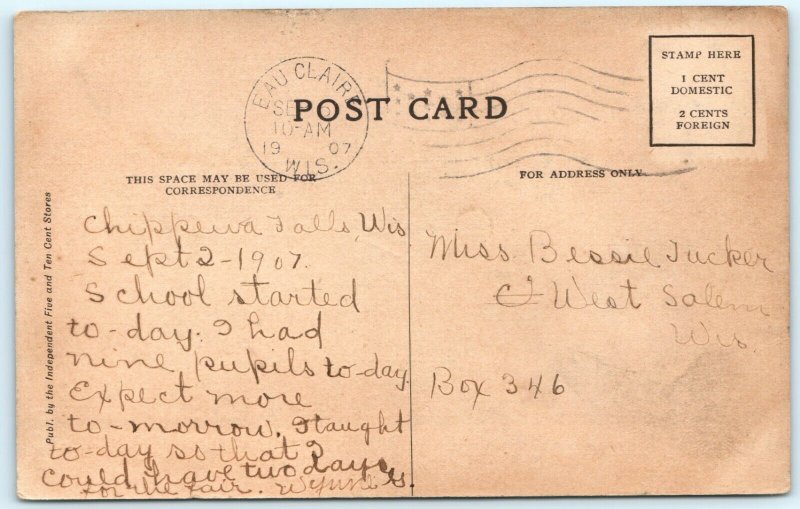 POST CARD
EAU CLAIRE
10-AM
19 07
WIS.
STAMP HERE
1 CENT
DOMESTIC
2 CENTS
FOREIGN
THIS SPACE MAY BE USED FOR
CORRESPONDENCE
FOR ADDRESS ONLY
Publ. by the Independent Five and Ten Cent Stores
Chippewa Falls, Wis
Sept 2-1907.
School started
to-day. I had
nine pupils to-day.
Expect more
to-morrow. I taught
to-day so that I
could have two days
for the fair.
Miss Bessie Tucker
West Salem
Wis
Box 346